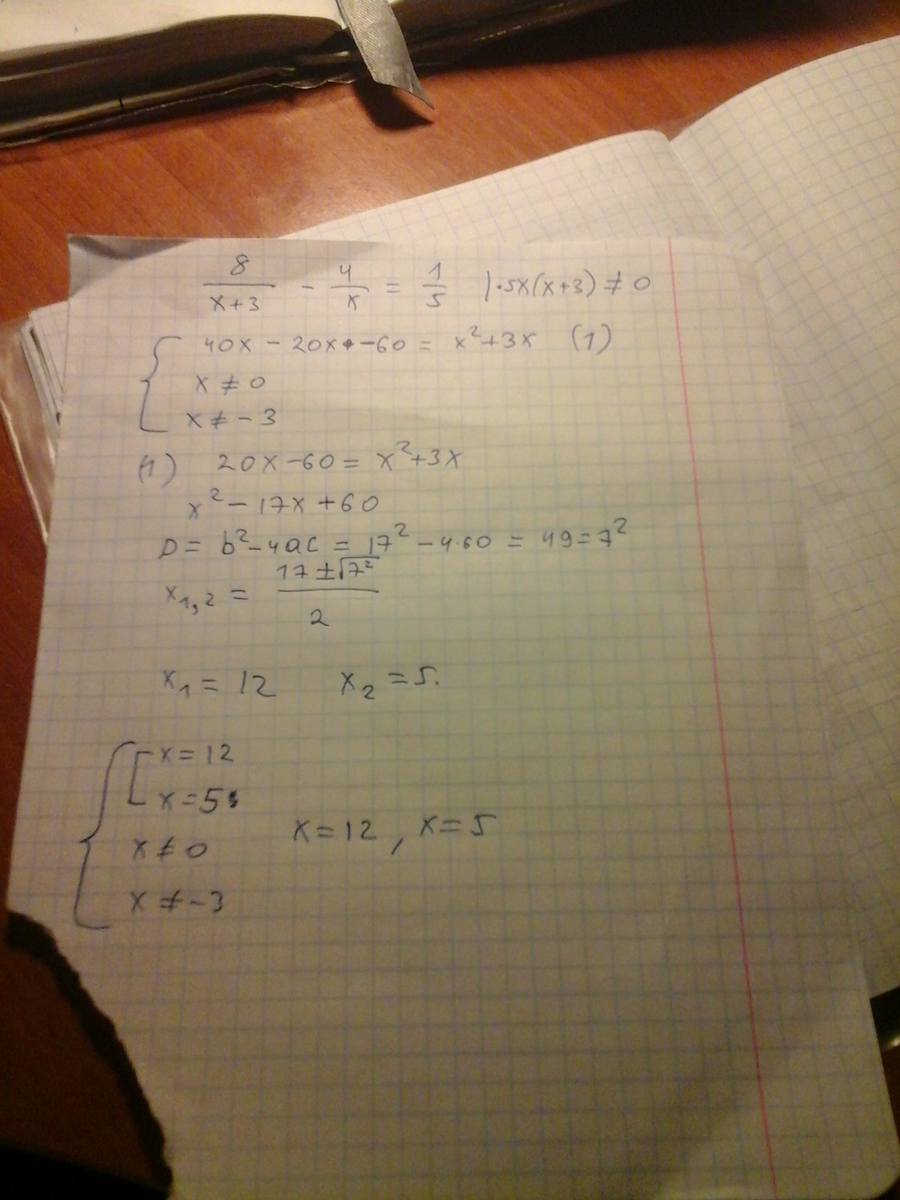 8/(x+3) - 4/x = 1/5 |·5x(x+3) ≠ 0
{ 40x - 20x - 60 = x²+3x (1)
x ≠ 0
x ≠ -3
(1) 20x - 60 = x²+3x
x² - 17x + 60
D = b² - 4ac = 17² - 4·60 = 49 = 7²
x₁,₂ = (17 ± √7²)/2
x₁ = 12 x₂ = 5.
{ [ x = 12
x = 5
x ≠ 0 x = 12, x = 5
x ≠ -3